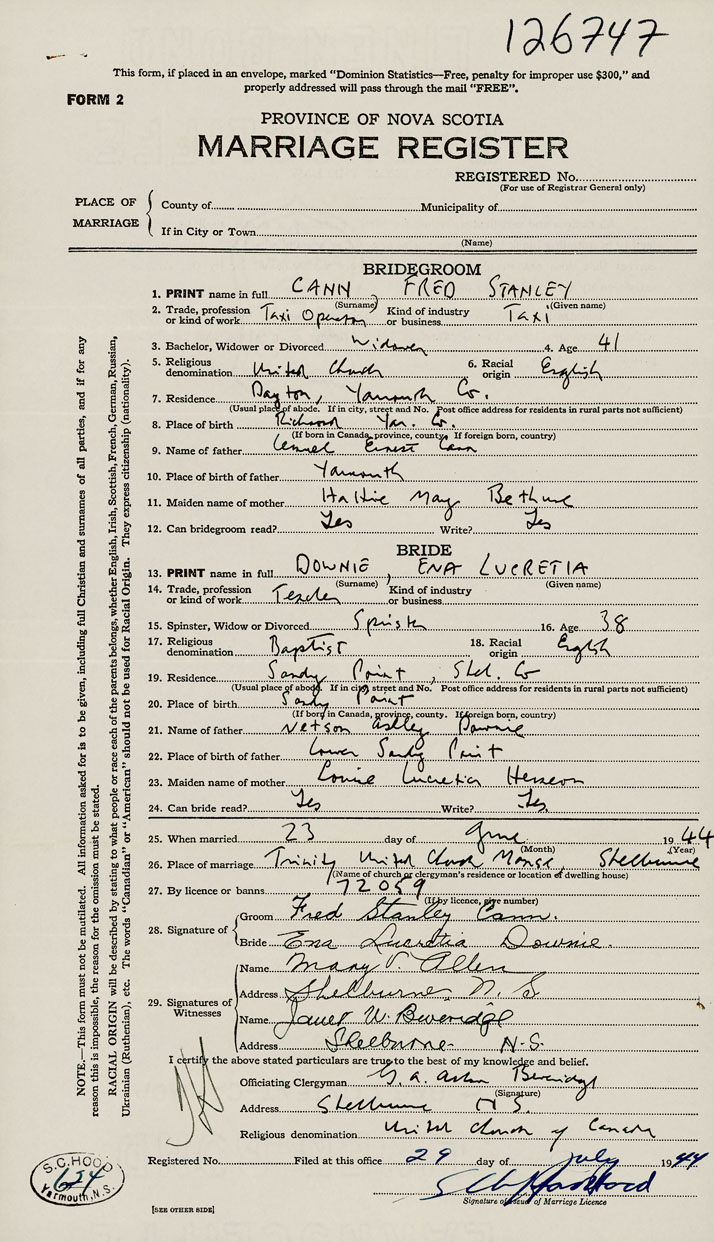 126747
This form, if placed in an envelope, marked "Dominion Statistics—Free, penalty for improper use $300," and
properly addressed will pass through the mail "FREE".
FORM 2
PROVINCE OF NOVA SCOTIA
MARRIAGE REGISTER
REGISTERED No.
(For use of Registrar General only)
PLACE OF MARRIAGE
County of Municipality of
If in City or Town
(Name)
BRIDEGROOM
1. PRINT name in full CANN, FRED STANLEY
(Surname) (Given name)
2. Trade, profession or kind of work Taxi Operator Kind of industry or business Taxi
3. Bachelor, Widower or Divorced Widower 4. Age 41
5. Religious denomination United Church 6. Racial origin English
7. Residence Dayton, Yarmouth Co.
(Usual place of abode. If in city, street and No. Post office address for residents in rural parts not sufficient)
8. Place of birth Richmond Yar. Co.
(If born in Canada, province, county. If foreign born, country)
9. Name of father Lemuel Ernest Cann
10. Place of birth of father Yarmouth
11. Maiden name of mother Hattie May Bethune
12. Can bridegroom read? Yes Write? Yes
BRIDE
13. PRINT name in full DOWNIE, ENA LUCRETIA
(Surname) (Given name)
14. Trade, profession or kind of work Teacher Kind of industry or business
15. Spinster, Widow or Divorced Spinster 16. Age 38
17. Religious denomination Baptist 18. Racial origin English
19. Residence Sandy Point, Shel. Co
(Usual place of abode. If in city, street and No. Post office address for residents in rural parts not sufficient)
20. Place of birth Sandy Point
(If born in Canada, province, county. If foreign born, country)
21. Name of father Nelson Ashley Downie
22. Place of birth of father Lower Sandy Point
23. Maiden name of mother Louise Lucretia
24. Can bride read? Yes Write? Yes
25. When married 23 day of June 1944
(Month) (Year)
26. Place of marriage Trinity United Church Manse, Shelburne
(Name of church or clergyman's residence or location of dwelling house)
27. By licence or banns 72059
(If by licence, give number)
28. Signature of
Groom Fred Stanley Cann.
Bride Ena Lucretia Downie.
29. Signatures of Witnesses
Name Mary P. Allen
Address Shelburne, N. S
Name Janet W. Beveridge
Address Shelburne- N.S.
I certify the above stated particulars are true to the best of my knowledge and belief.
Officiating Clergyman G. A. Beveridge
(Signature)
Address Shelburne N.S.
Religious denomination United Church of Canada
Registered No. Filed at this office 29 day of July 1944
Signature of Issuer of Marriage Licence
S. C. HOOD
624
Yarmouth, N.S.
[SEE OTHER SIDE]
NOTE.—This form must not be mutilated. All information asked for is to be given, including full Christian and surnames of all parties, and if for any
reason this is impossible, the reason for the omission must be stated.
RACIAL ORIGIN will be described by stating to what people or race each of the parents belongs, whether English, Irish, Scottish, French, German, Russian,
Ukrainian (Ruthenian), etc. The words "Canadian" or "American" should not be used for Racial Origin. They express citizenship (nationality).